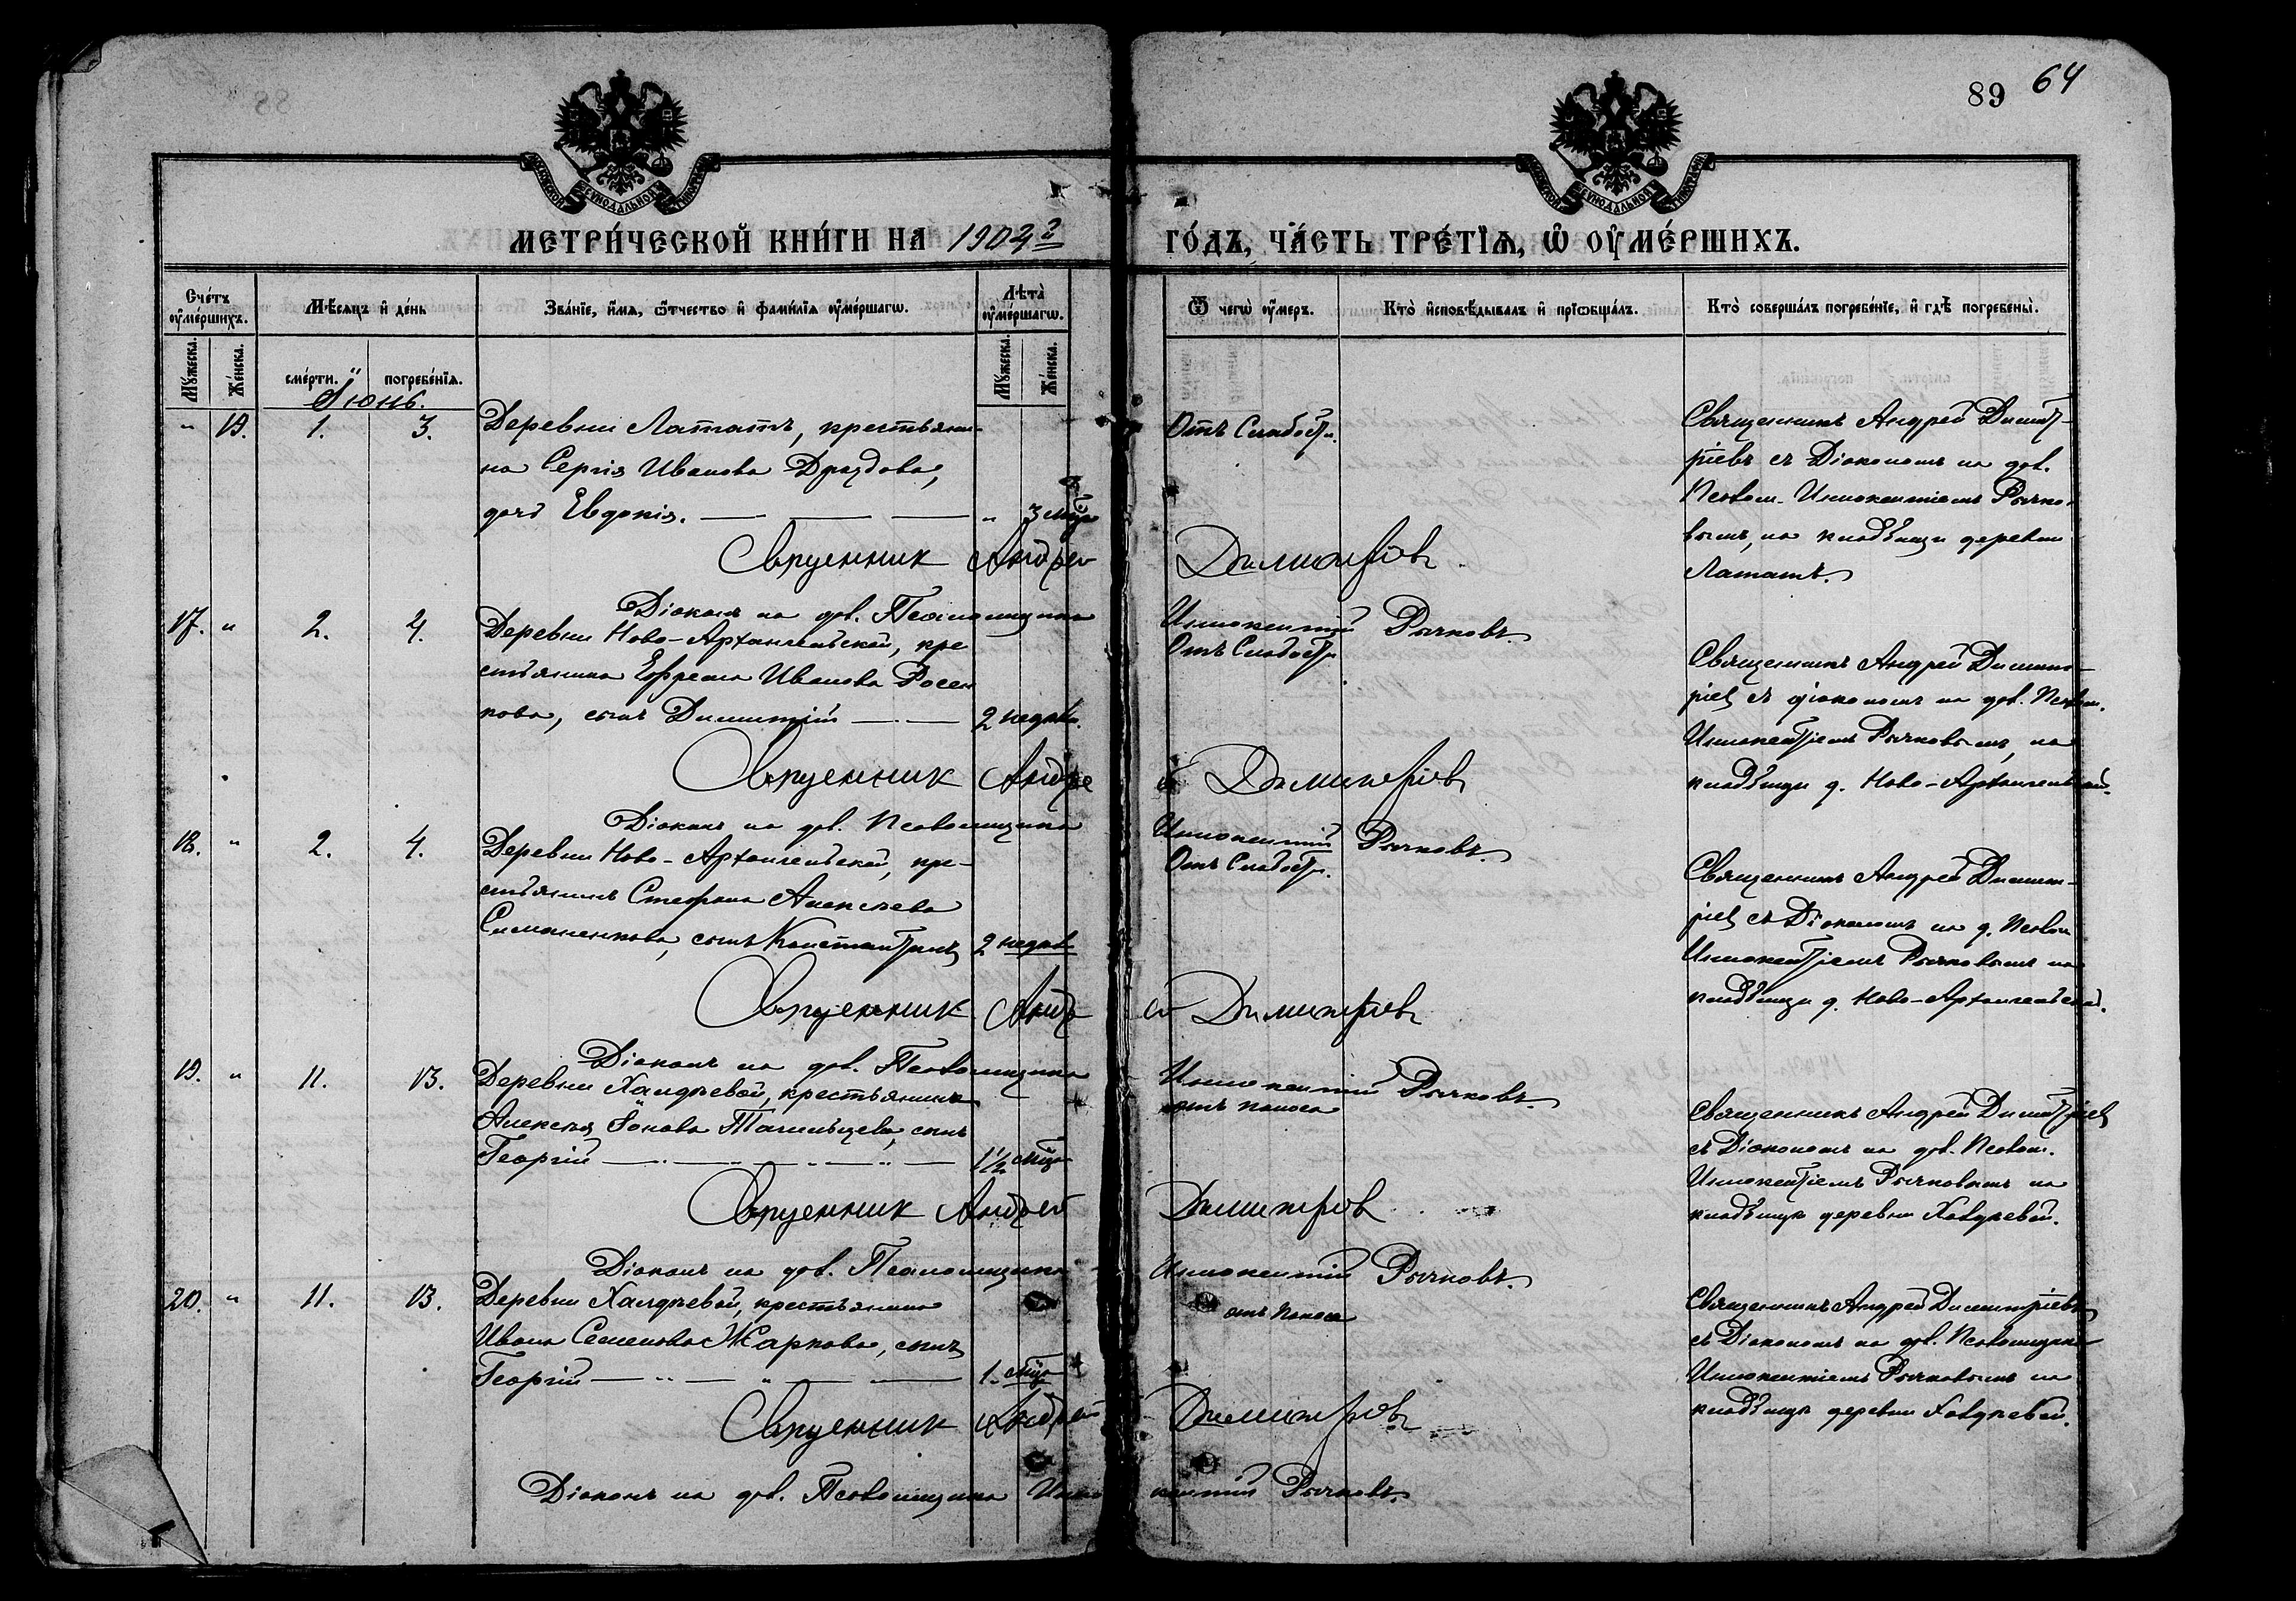 89 64
МОСКОВСКОЙ СѴНОДАЛЬНОЙ ТИПОГРАФІИ
МОСКОВСКОЙ СѴНОДАЛЬНОЙ ТИПОГРАФІИ
МЕТРИ́ЧЕСКОЙ КНИ́ГИ НА 1902 г
ГО́ДЪ, ЧА́СТЬ ТРЕ́ТЇѦ, Ѡ҆ ОУ҆МЕ́РШИХЪ.
Сче́тъ оу҆ме́ршихъ.
Мѣ́сѧцъ и҆ де́нь
Зва́нїе, и҆́мѧ, ѻ҆́тчество и҆ фами́лїѧ оу҆ме́ршагѡ.
Лѣта̀ оу҆ме́ршагѡ.
Ѿ чегѡ̀ оу҆́меръ.
Кто̀ и҆сповѣ́дывалъ и҆ прїѡбща́лъ.
Кто̀ соверша́лъ погребе́нїе, и҆ гдѣ̀ погребены̀.
Мꙋ́жеска. Же́нска. сме́рти. погребе́нїѧ. Мꙋ́жеска. Же́нска.
Іюнь.
" 19. 1. 3. Деревни Лататъ, крестьяни-
на Сергія Иванова Дроздова,
дочь Евдокія. " 3 мѣс
Отъ Слабости.
Священникъ Андрей Димит-
ріевъ съ Діакономъ на дов.
Псалом. Иннокентіемъ Рычко-
вымъ, на кладбищи деревни
Лататъ.
Священник Андрей Димитріев
Діаконъ на дов. Псаломщика Иннокентій Рычковъ.
17. " 2. 4. Деревни Ново-Архангельской, кре
стьянина Ефрема Иванова Росен
кова, сынъ Димитрій 2 недѣли.
Отъ Слабости
Священникъ Андрей Димит-
ріев съ діакономъ на дов. Псалом.
Иннокентіемъ Рычковымъ, на
кладбищи д. Ново-Архангельской.
Священник Андрей Димитріев
Діаконъ на дов. Псаломщика Иннокентій Рычковъ.
18. " 2. 4. Деревни Ново-Архангельской, кре-
стьянинъ Стефана Алексѣева
Симоненкова, сынъ Константинъ 2 недѣл
Отъ Слабости.
Священникъ Андрей Димит-
ріев съ Діакономъ на д. Псалом
Иннокентіемъ Рычковымъ на
кладбищи д. Ново-Архангельской.
Священник Андрей Димитріев
Діаконъ на дов. Псаломщика Иннокентій Рычковъ.
19. " 11. 13. Деревни Халдѣевой, крестьянина
Алексѣя Іонова сынъ
Георгій 1½ мѣс
отъ поноса
Священникъ Андрей Димитріев
съ Діакономъ на дов. Псалом.
Иннокентіемъ Рычковымъ на
кладбищи деревни Халдѣевой.
Священник Андрей Димитріев
Діаконъ на дов. Псаломщика Иннокентій Рычковъ.
20. " 11. 13. Деревни Халдѣевой, крестьянина
Ивана Семенова Жаркова, сынъ
Георгій 1. мѣс
отъ Поноса
Священникъ Андрей Димитріевъ
съ Діакономъ на дов. Псаломщика
Иннокентіемъ Рычковымъ на
кладбищи деревни Халдѣевой.
Священник Андрей Димитріев
Діаконъ на дов. Псаломщика Иннокентій Рычковъ.